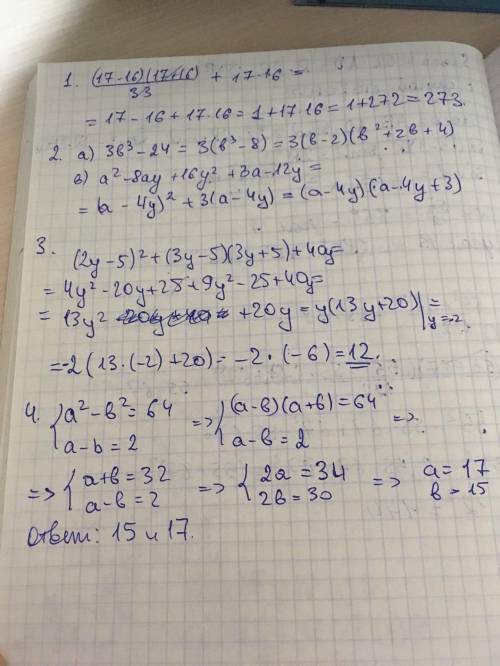 1. (17-16)(17+16)/33 + 17·16 =
= 17 - 16 + 17·16 = 1 + 17·16 = 1 + 272 = 273.
2. а) 3в³ - 24 = 3(в³ - 8) = 3(в - 2)(в² + 2в + 4)
в) a² - 8ay + 16y² + 3a - 12y =
= (a - 4y)² + 3(a - 4y) = (a - 4y)(a - 4y + 3)
3.
(2y - 5)² + (3y - 5)(3y + 5) + 40y =
= 4y² - 20y + 25 + 9y² - 25 + 40y =
= 13y² + 20y = y(13y + 20)|y=-2 =
= -2(13·(-2) + 20) = -2·(-6) = 12.
4. { a² - в² = 64 => { (a - в)(a + в) = 64 =>
a - b = 2 a - в = 2
=> { a + в = 32 => { 2a = 34 => a = 17
a - в = 2 2в = 30 в = 15
Ответ: 15 и 17.